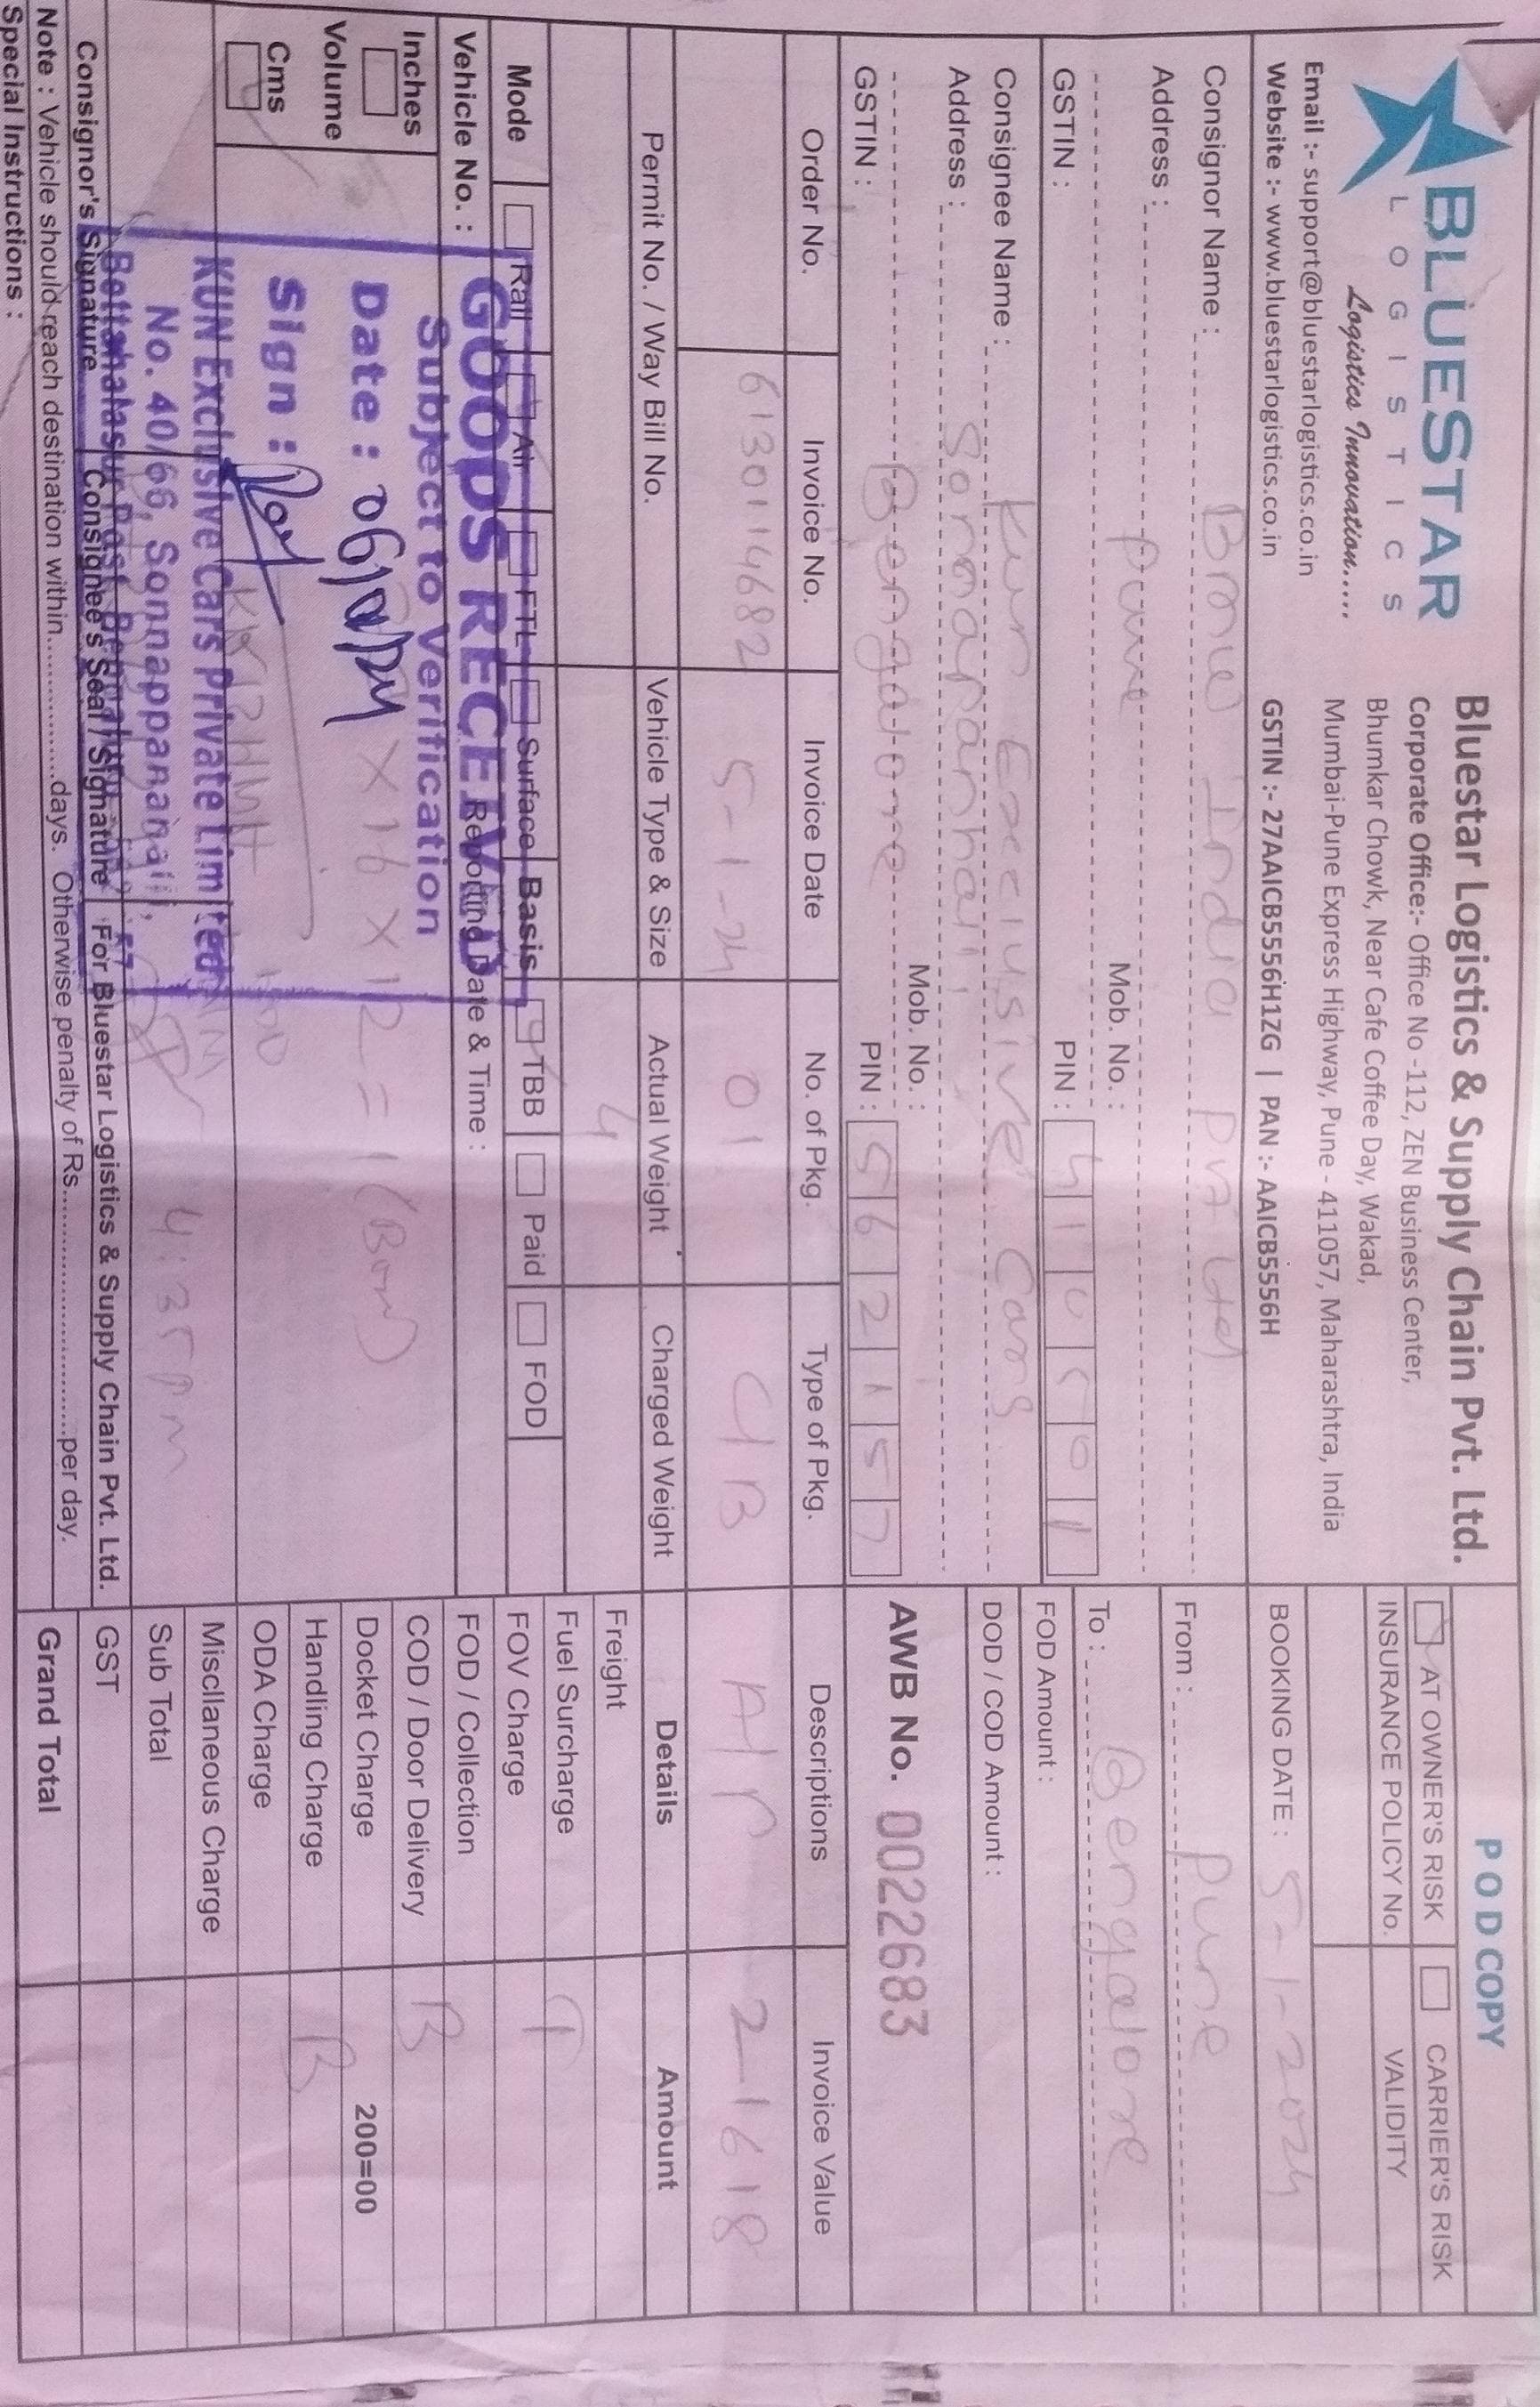 BLUESTAR
LOGISTICS
Logistics Innovation.....
Email :- support@bluestarlogistics.co.in
Website :- www.bluestarlogistics.co.in
Bluestar Logistics & Supply Chain Pvt. Ltd.
Corporate Office:- Office No -112, ZEN Business Center,
Bhumkar Chowk, Near Cafe Coffee Day, Wakad,
Mumbai-Pune Express Highway, Pune - 411057, Maharashtra, India
GSTIN :- 27AAICB5556H1ZG | PAN :- AAICB5556H
POD COPY
AT OWNER'S RISK CARRIER'S RISK
INSURANCE POLICY No. VALIDITY
BOOKING DATE : 5-1-2024
Consignor Name : BMW India Pvt Ltd
Address : Pune
Mob. No. :
GSTIN : PIN : 410501
From : Pune
To : Bengalore
FOD Amount :
DOD / COD Amount :
Consignee Name : Kun Execlusive Cars
Address : Sonnapanhalli,
Bengalore Mob. No. :
GSTIN : PIN : 562157
AWB No. 0022683
Order No. Invoice No. Invoice Date No. of Pkg. Type of Pkg. Descriptions Invoice Value
6130114682 5-1-24 01 C/B A/P 21618
Permit No. / Way Bill No. Vehicle Type & Size Actual Weight Charged Weight Details Amount
4
Freight
Fuel Surcharge T
FOV Charge
FOD / Collection
COD / Door Delivery B
Docket Charge 200=00
Handling Charge B
ODA Charge
Miscllaneous Charge
Sub Total
GST
Grand Total
Mode Rail Air FTL Surface Basis TBB Paid FOD
Vehicle No. : Reporting Date & Time :
Inches
Volume
Cms
× 16 × 12 = 1 (Box)
GOODS RECEIVED
Subject to Verification
Date :
Sign :
KRISHNA
KUN Exclusive Cars Private Limited
No. 40/66, Sonnappanahalli,
Bettahalasur Post, Bengaluru
4:35PM
Consignor's Signature Consignee's Seal / Signature For Bluestar Logistics & Supply Chain Pvt. Ltd.
Note : Vehicle should reach destination within.................days. Otherwise penalty of Rs..............................per day.
Special Instructions :